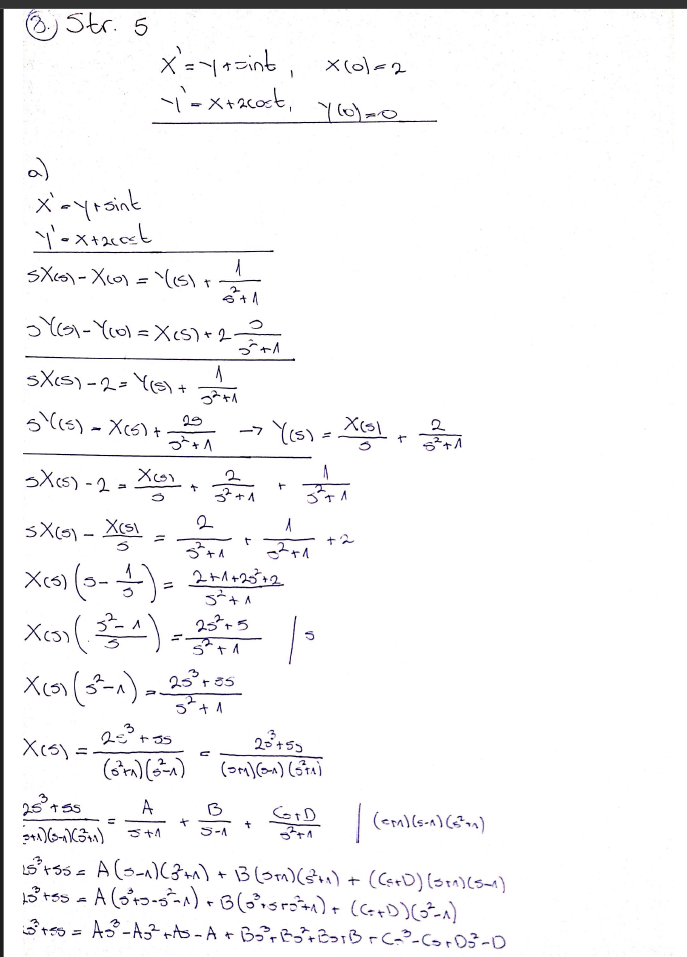 3. Str. 5
x' = y + sint, x(0) = 2
y' = x + 2cost, y(0) = 0
a)
x' = y + sint
y' = x + 2cost
sX(s) - X(0) = Y(s) + 1/(s²+1)
sY(s) - Y(0) = X(s) + 2 s/(s²+1)
sX(s) - 2 = Y(s) + 1/(s²+1)
sY(s) = X(s) + 2s/(s²+1) → Y(s) = X(s)/s + 2/(s²+1)
sX(s) - 2 = X(s)/s + 2/(s²+1) + 1/(s²+1)
sX(s) - X(s)/s = 2/(s²+1) + 1/(s²+1) + 2
X(s) (s - 1/s) = (2+1+2s²+2)/(s²+1)
X(s) ((s²-1)/s) = (2s²+5)/(s²+1) | s
X(s) (s²-1) = (2s³+5s)/(s²+1)
X(s) = (2s³+5s)/((s²+1)(s²-1)) = (2s³+5s)/((s+1)(s-1)(s²+1))
(2s³+5s)/((s+1)(s-1)(s²+1)) = A/(s+1) + B/(s-1) + (Cs+D)/(s²+1) | (s+1)(s-1)(s²+1)
2s³+5s = A(s-1)(s²+1) + B(s+1)(s²+1) + (Cs+D)(s+1)(s-1)
2s³+5s = A(s³+s-s²-1) + B(s³+s+s²+1) + (Cs+D)(s²-1)
2s³+5s = As³-As²+As-A + Bs³+Bs²+Bs+B + Cs³-Cs+Ds²-D